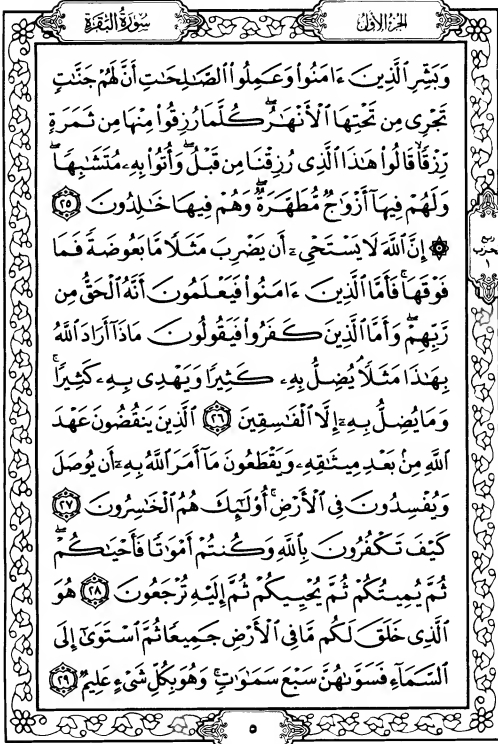 سُورَةُ البَقَرَةِ
الجُزءُ الأَوّلُ
وَبَشِّرِ ٱلَّذِينَ ءَامَنُوا۟ وَعَمِلُوا۟ ٱلصَّـٰلِحَـٰتِ أَنَّ لَهُمْ جَنَّـٰتٍ
تَجْرِى مِن تَحْتِهَا ٱلْأَنْهَـٰرُ ۖ كُلَّمَا رُزِقُوا۟ مِنْهَا مِن ثَمَرَةٍ
رِّزْقًا ۙ قَالُوا۟ هَـٰذَا ٱلَّذِى رُزِقْنَا مِن قَبْلُ ۖ وَأُتُوا۟ بِهِۦ مُتَشَـٰبِهًا ۖ
وَلَهُمْ فِيهَآ أَزْوَٰجٌ مُّطَهَّرَةٌ ۖ وَهُمْ فِيهَا خَـٰلِدُونَ ٢٥
۞ إِنَّ ٱللَّهَ لَا يَسْتَحْىِۦٓ أَن يَضْرِبَ مَثَلًا مَّا بَعُوضَةً فَمَا
فَوْقَهَا ۚ فَأَمَّا ٱلَّذِينَ ءَامَنُوا۟ فَيَعْلَمُونَ أَنَّهُ ٱلْحَقُّ مِن
رَّبِّهِمْ ۖ وَأَمَّا ٱلَّذِينَ كَفَرُوا۟ فَيَقُولُونَ مَاذَآ أَرَادَ ٱللَّهُ
بِهَـٰذَا مَثَلًا ۘ يُضِلُّ بِهِۦ كَثِيرًا وَيَهْدِى بِهِۦ كَثِيرًا ۚ
وَمَا يُضِلُّ بِهِۦٓ إِلَّا ٱلْفَـٰسِقِينَ ٢٦ ٱلَّذِينَ يَنقُضُونَ عَهْدَ
ٱللَّهِ مِنۢ بَعْدِ مِيثَـٰقِهِۦ وَيَقْطَعُونَ مَآ أَمَرَ ٱللَّهُ بِهِۦٓ أَن يُوصَلَ
وَيُفْسِدُونَ فِى ٱلْأَرْضِ ۚ أُو۟لَـٰٓئِكَ هُمُ ٱلْخَـٰسِرُونَ ٢٧
كَيْفَ تَكْفُرُونَ بِٱللَّهِ وَكُنتُمْ أَمْوَٰتًا فَأَحْيَـٰكُمْ ۖ
ثُمَّ يُمِيتُكُمْ ثُمَّ يُحْيِيكُمْ ثُمَّ إِلَيْهِ تُرْجَعُونَ ٢٨ هُوَ
ٱلَّذِى خَلَقَ لَكُم مَّا فِى ٱلْأَرْضِ جَمِيعًا ثُمَّ ٱسْتَوَىٰٓ إِلَى
ٱلسَّمَآءِ فَسَوَّىٰهُنَّ سَبْعَ سَمَـٰوَٰتٍ ۚ وَهُوَ بِكُلِّ شَىْءٍ عَلِيمٌ ٢٩
ربع
الحزب
١
٥